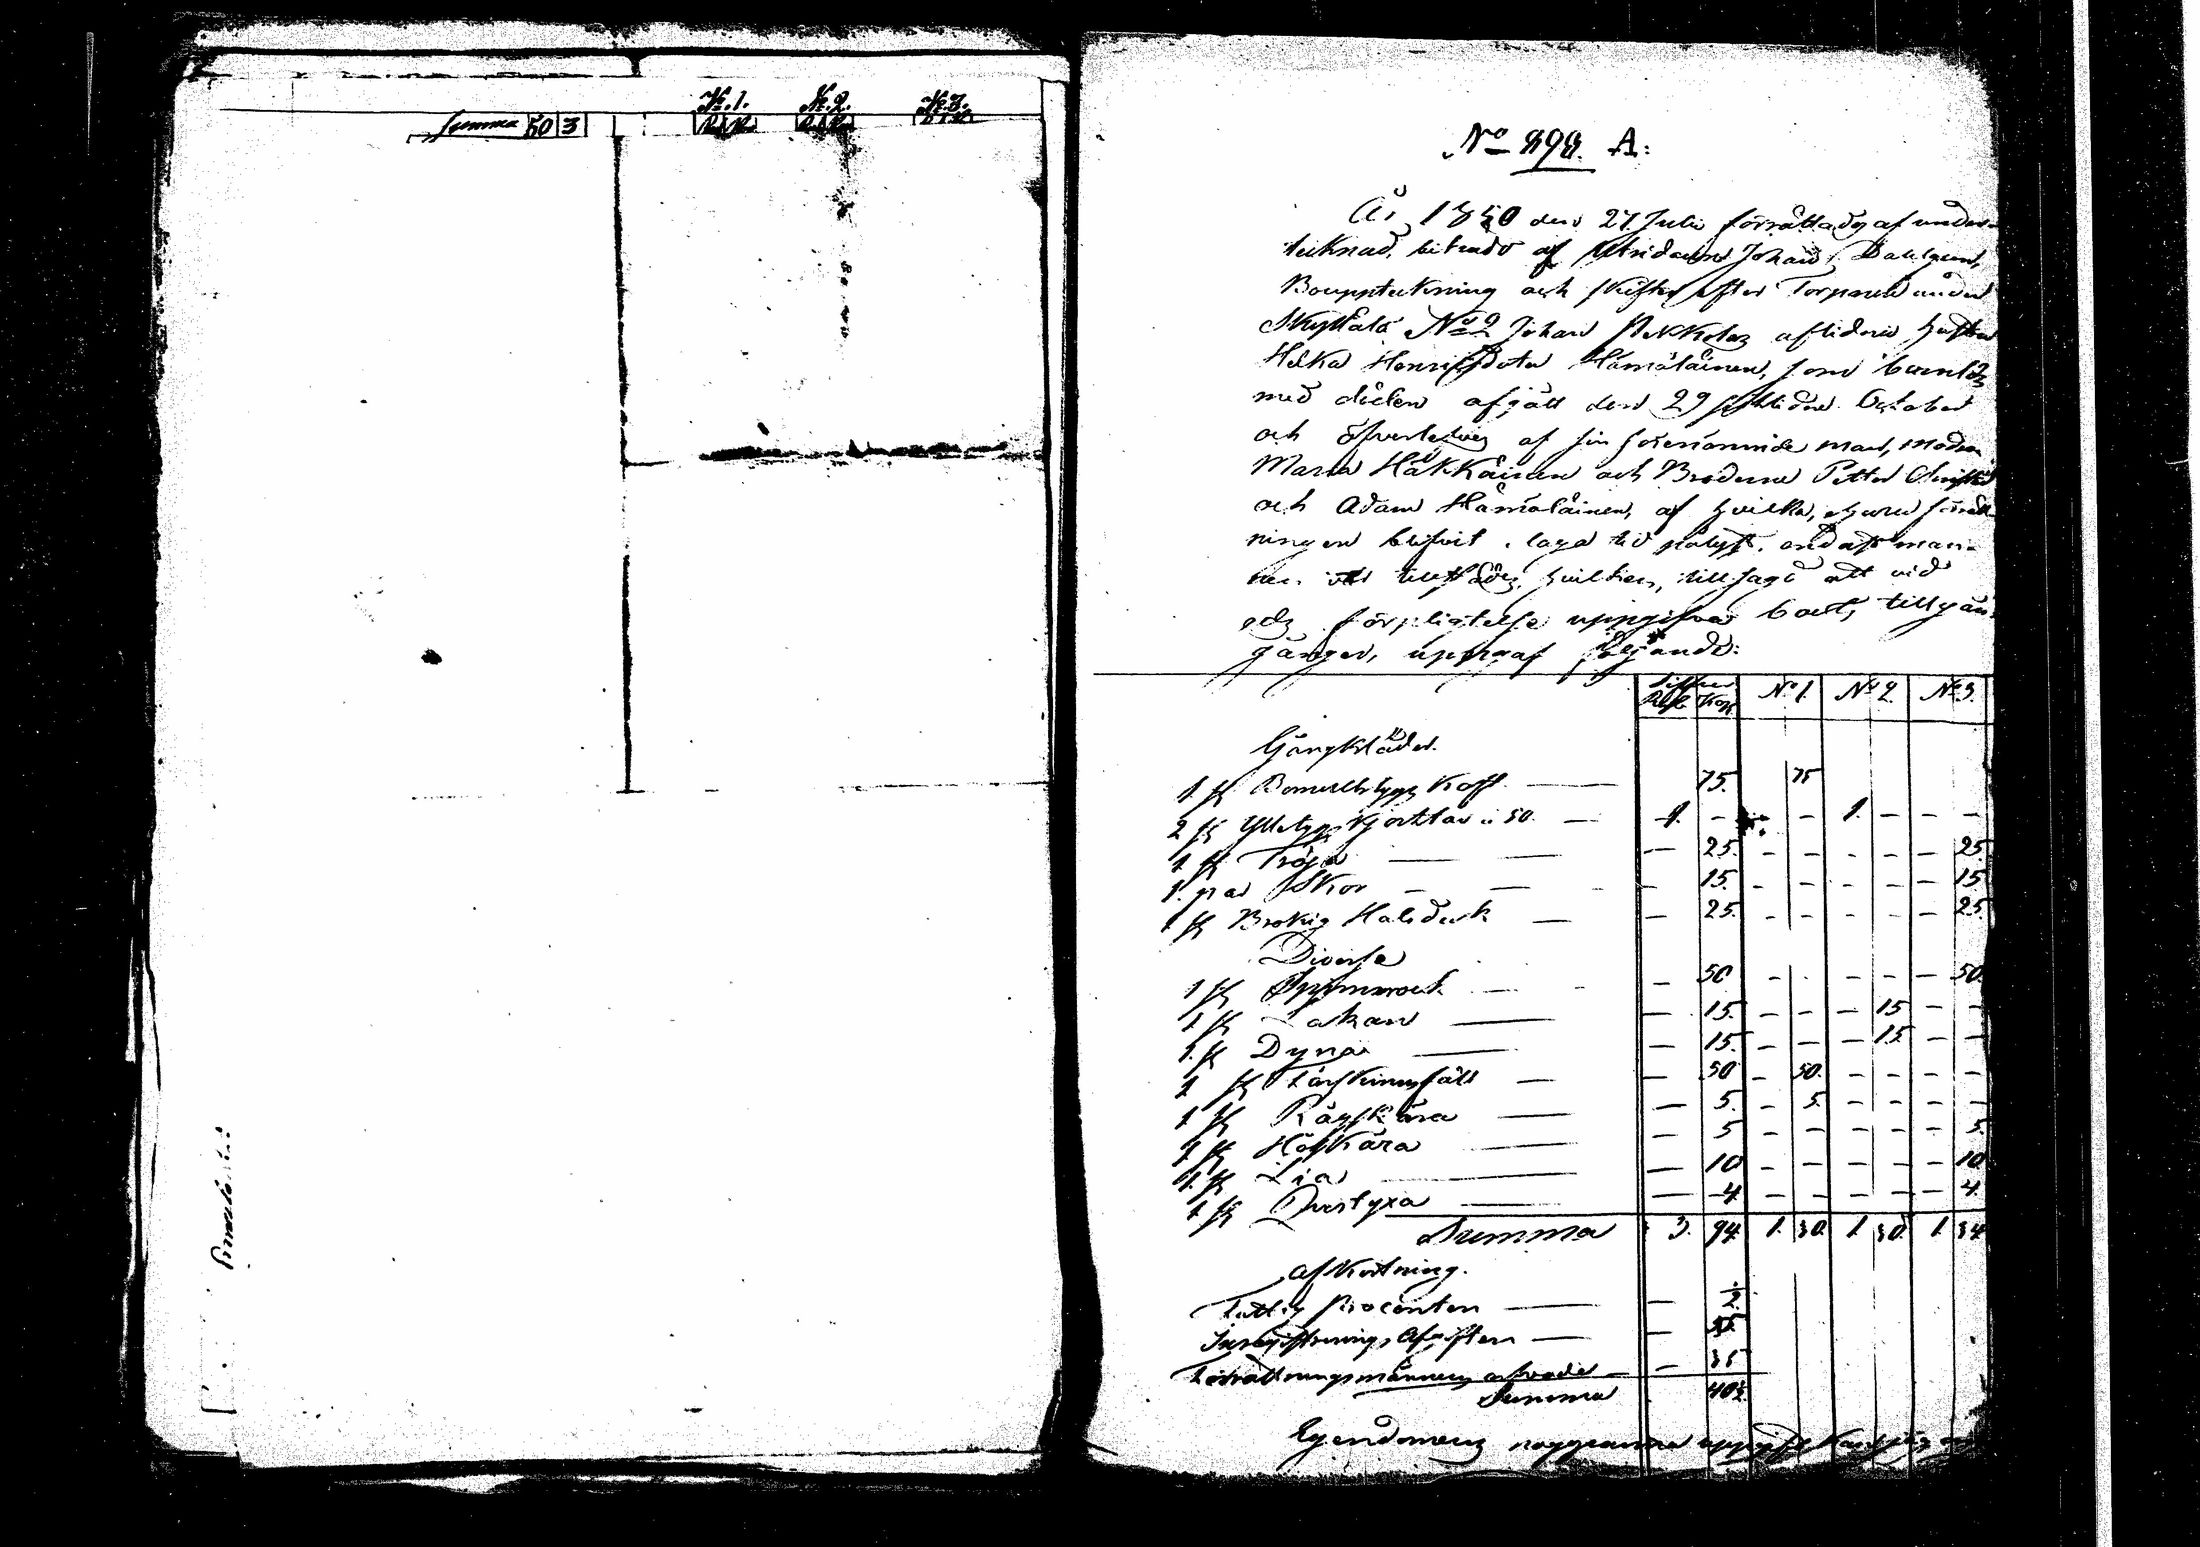 Summa 50 3
No. 1. No. 2. No. 3.
No 898. A:
År 1850 den 27 Julii förrättades af under-
teknad, biträdd af Johan Dahlgren,
Bouppteckning och skifte efter Torparen under
Skyttälä No 2 Johan Pekkolas aflidna hustru
Helka Henricsdoter Hämäläinen, som barnlös
med döden afgått den 29 sistlidne October
och öfverlefves af sin förenämnde man, modren
Maria Häkkäinen och Bröderne Petter
och Adam Hämäläinen, af hvilka, ehuru förrätt-
ningen blifvit laga tid pålyst, endast man-
nen var tillstädes, hvilken, tillsagd att vid
eds förpligtelse uppgifva boets tillgån-
gångar, uppgaf följande:
Silfver
Rubl Kop. No 1. No 2. No 3.
Gångkläder.
1 st Bomullstygs Koft — 75. 75
2 st Ylletygs Kjortlar à 50. — 1. — — 1. — — —
1 st Tröja — — 25. — — — — — 25.
1. par Skor — — 15. — — — — — 15
1 st Brokig Halsduk — — 25. — — — — — 25
Diverse
1 st Spinnrock — — 50 — — — — — 50.
1 st Lakan — — 15. — — — 15 — —
1. st Dyna — — 15. — — — 15 — —
1 st Fårskinnsfäll — — 50 — 50. — — — —
1 st Rågskära — — 5. — 5. — — — —
1 st Höskära — — 5 — — — — — 5.
1. st Lia — — 10 — — — — — 10
1 st Qvistyxa — — 4 — — — — — 4.
Summa 3. 94. 1. 30. 1. 30. 1. 34
Afkortning.
Fattig Procenten — — ½
Inregistrerings Afgiften — —
Förrättningsmännens arfvode — — 35
Summa 40½
Egendomens noggranna